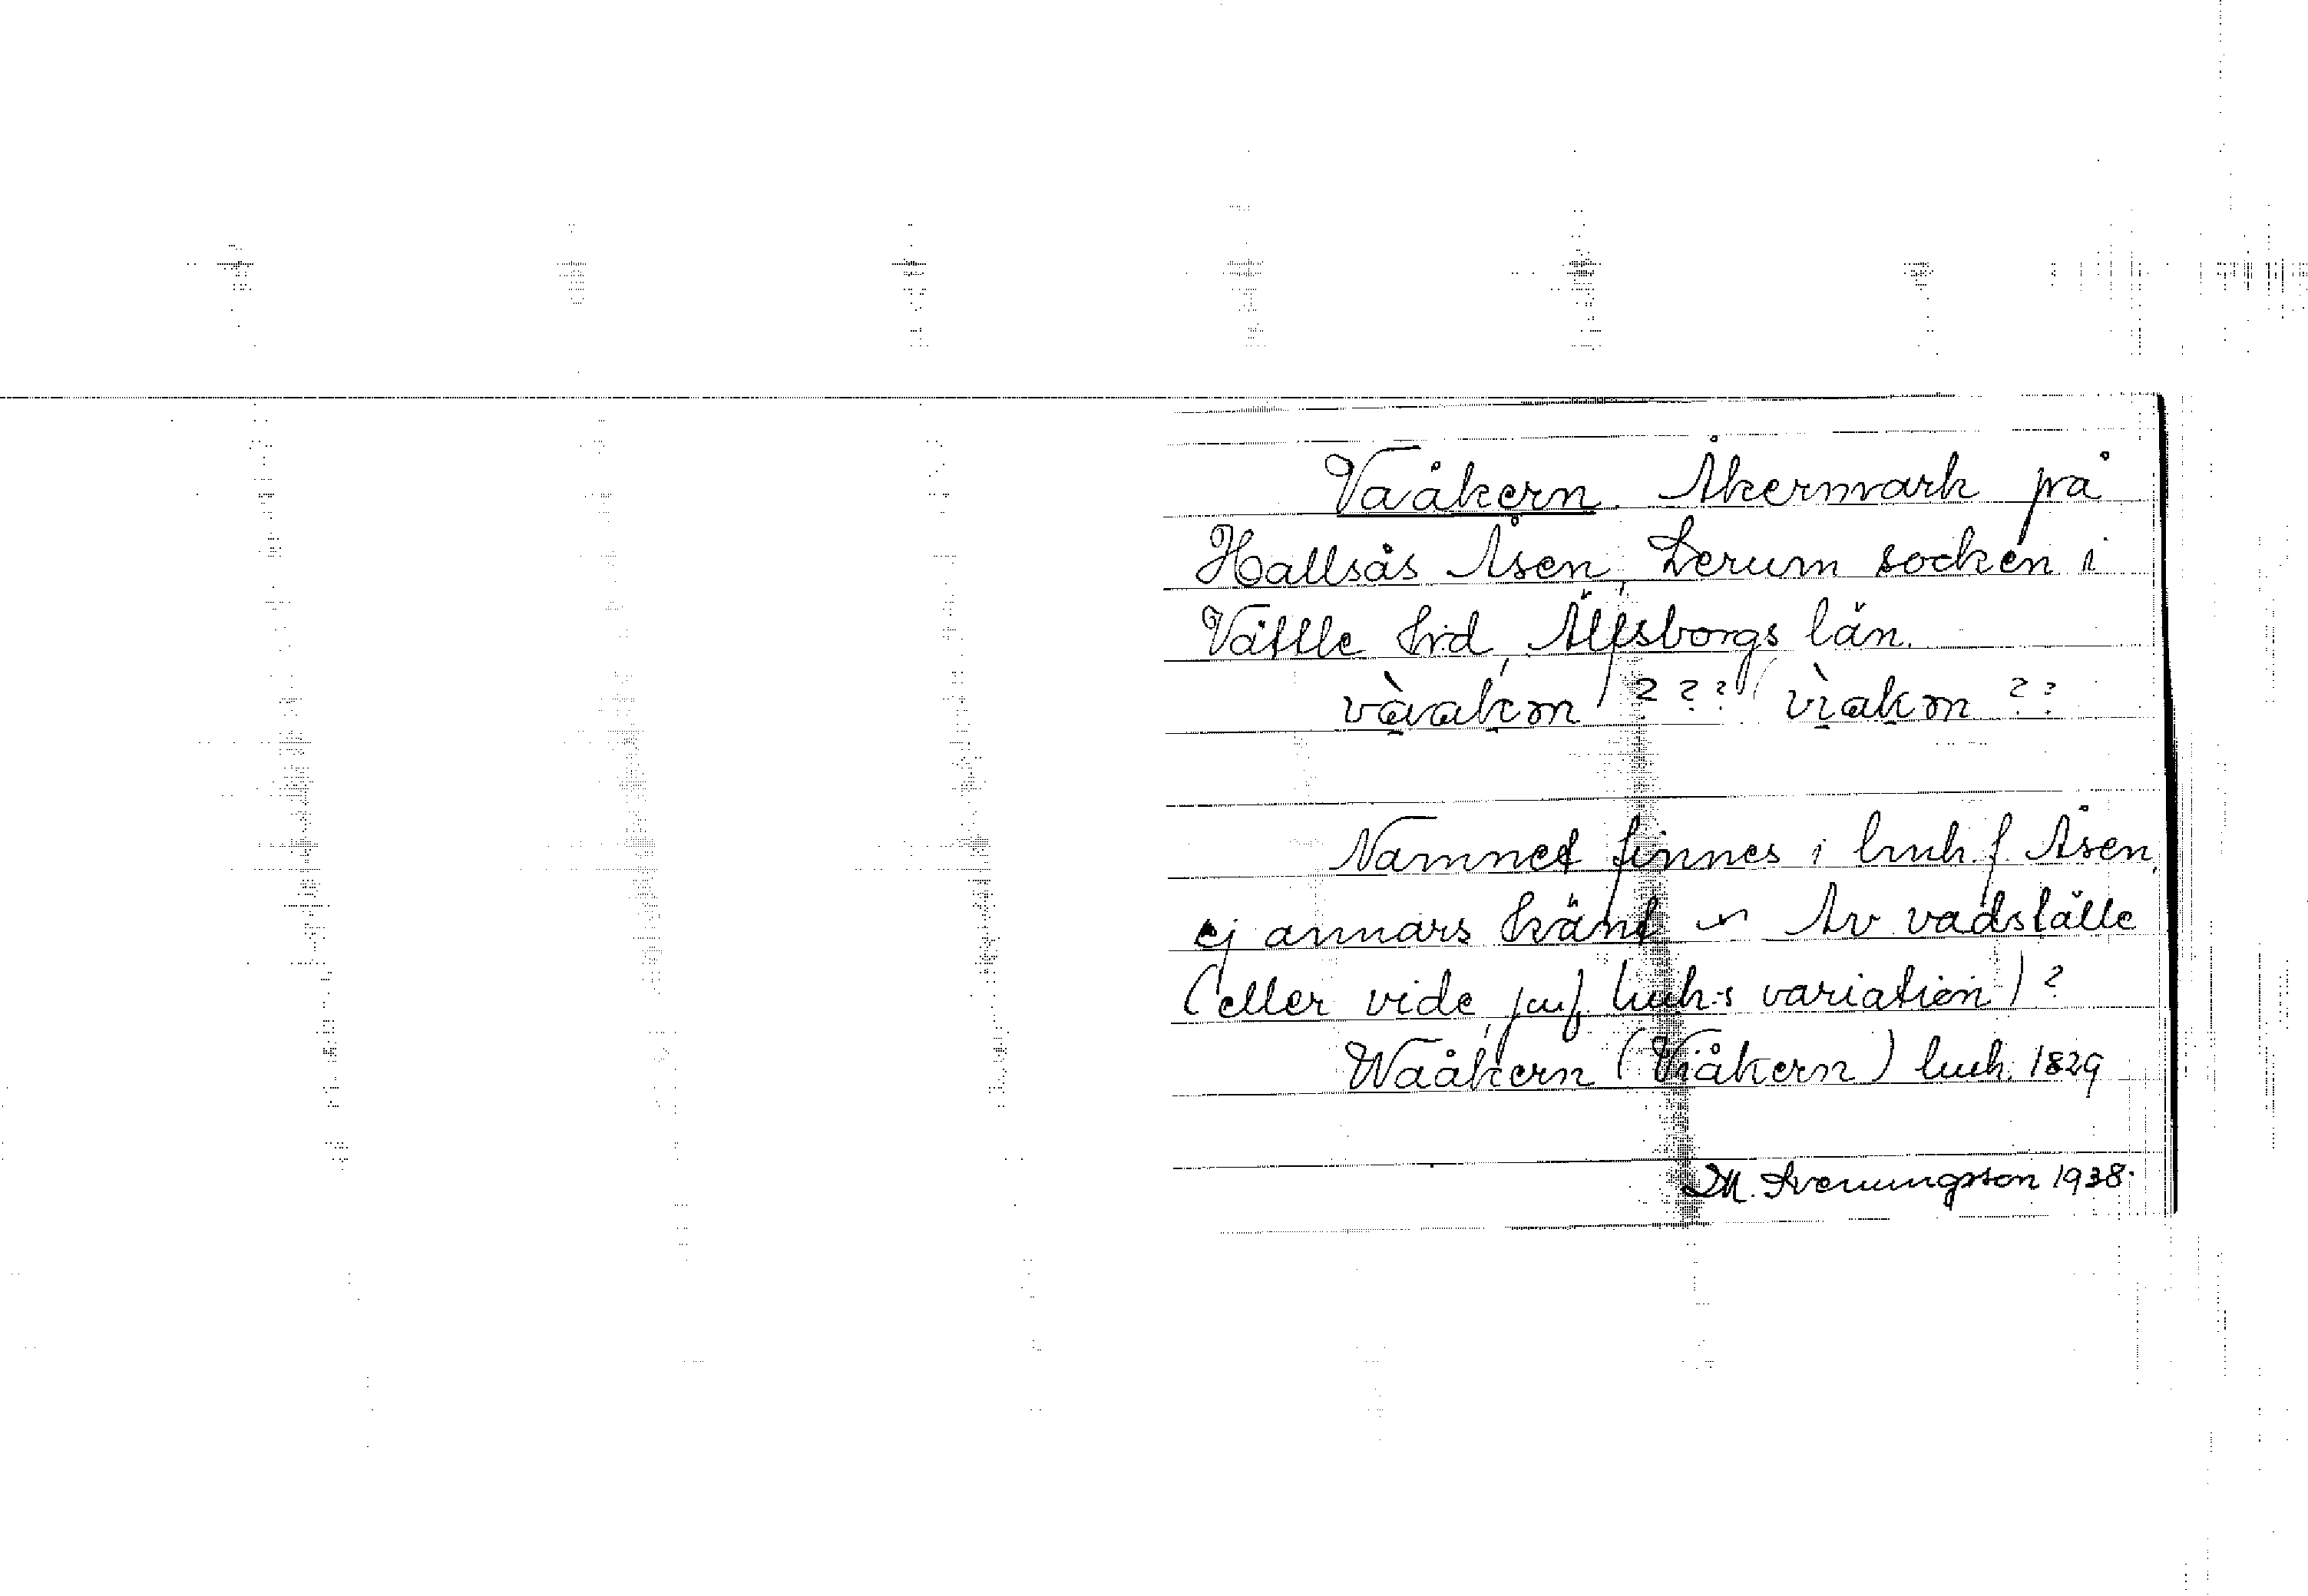 Vaåkern. Åkermark på
Hallsås Åsen, Lerum socken i
Vättle hrd, Älfsborgs län.
vàakɷn ??? vìakɷn ??
Namnet finnes i lmh. f. Åsen,
ej annars känt. Av vadställe
(eller vide, jmf. lmh:s variation)?
Waåkern (Viåkern) lmh. 1829
M. Svenungsson 1938.